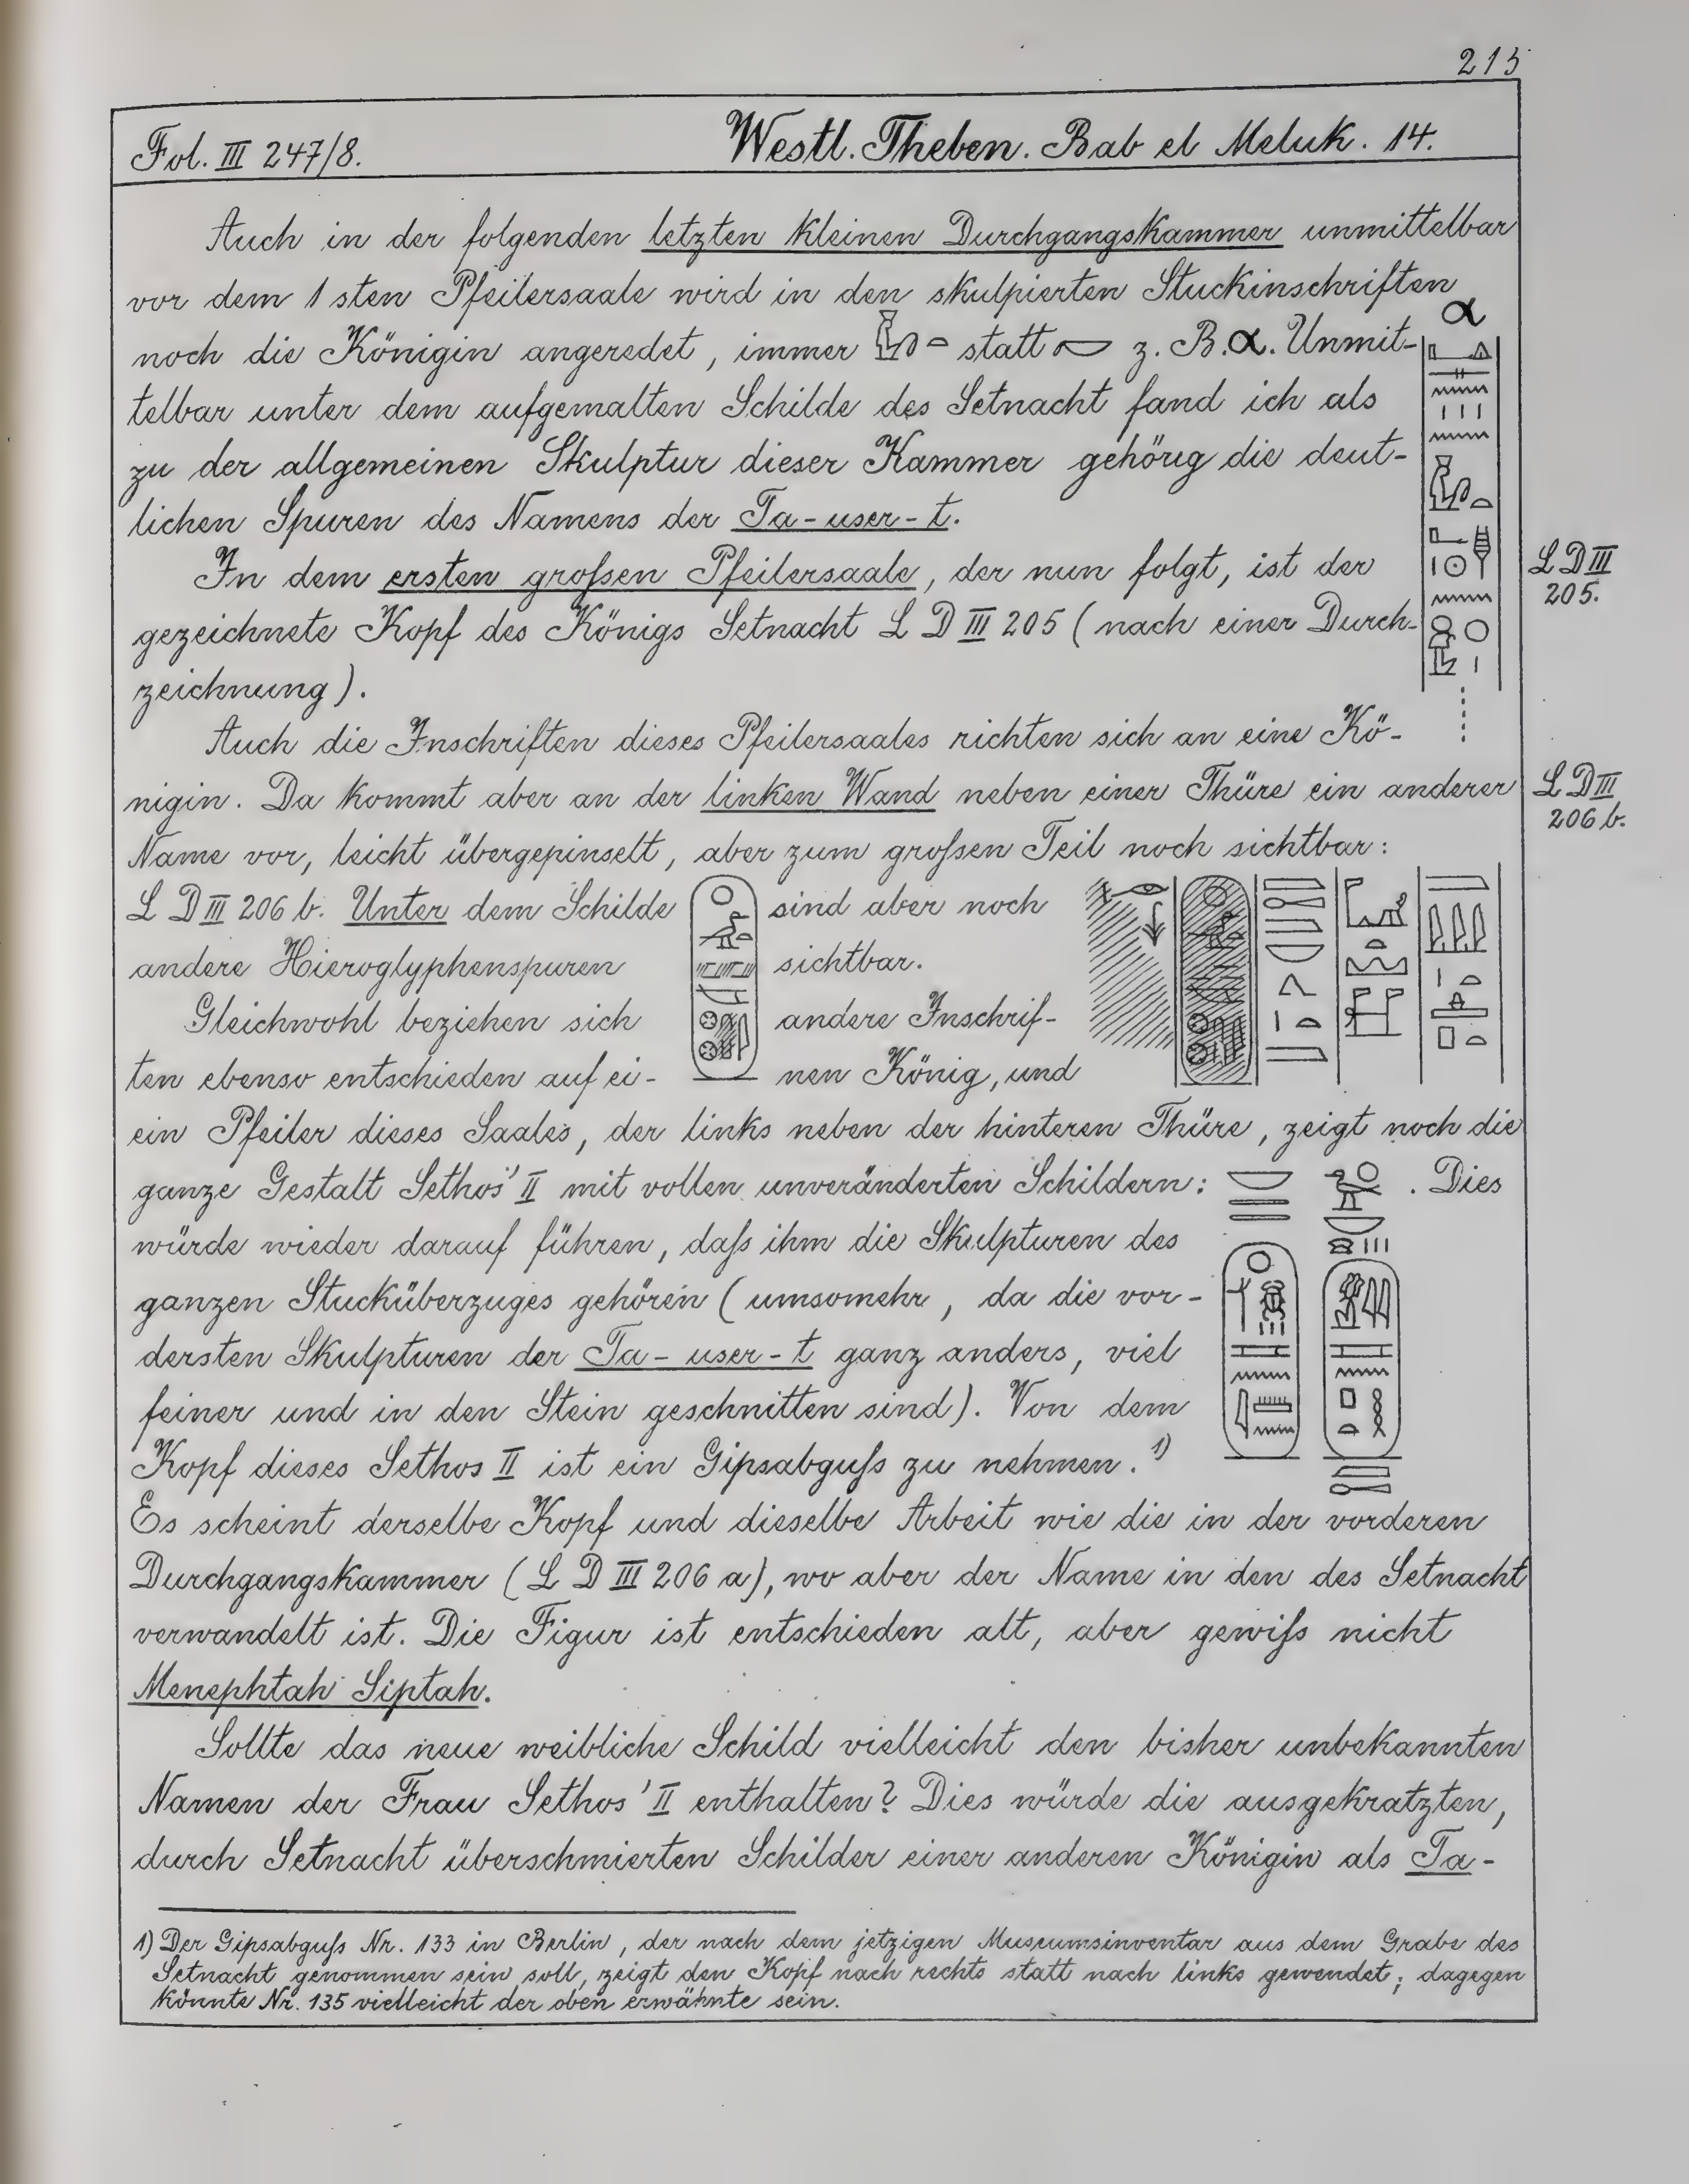 213
Fol. III 247/8.
Westl. Theben. Bab el Meluk. 14.
Auch in der folgenden letzten kleinen Durchgangskammer unmittelbar
vor dem 1sten Pfeilersaale wird in den skulpierten Stuckinschriften
α
noch die Königin angeredet, immer statt z. B. α. Unmit-
telbar unter dem aufgemalten Schilde des Setnacht fand ich als
zu der allgemeinen Skulptur dieser Kammer gehörig die deut-
lichen Spuren des Namens der Ta-user-t.
In dem ersten großen Pfeilersaale, der nun folgt, ist der
L D III
205.
gezeichnete Kopf des Königs Setnacht L D III 205 (nach einer Durch-
zeichnung).
Auch die Inschriften dieses Pfeilersaales richten sich an eine Kö-
nigin. Da kommt aber an der linken Wand neben einer Thüre ein anderer
L D III
206 b.
Name vor, leicht übergepinselt, aber zum großen Teil noch sichtbar:
L D III 206 b. Unter dem Schilde sind aber noch
andere Hieroglyphenspuren sichtbar.
Gleichwohl beziehen sich andere Inschrif-
ten ebenso entschieden auf ei- nen König, und
ein Pfeiler dieses Saales, der links neben der hinteren Thüre, zeigt noch die
ganze Gestalt Sethos' II mit vollen unveränderten Schildern: . Dies
würde wieder darauf führen, daß ihm die Skulpturen des
ganzen Stucküberzuges gehören (umsomehr, da die vor-
dersten Skulpturen der Ta-user-t ganz anders, viel
feiner und in den Stein geschnitten sind). Von dem
Kopf dieses Sethos II ist ein Gipsabguß zu nehmen. 1)
Es scheint derselbe Kopf und dieselbe Arbeit wie die in der vorderen
Durchgangskammer (L D III 206 a), wo aber der Name in den des Setnacht
verwandelt ist. Die Figur ist entschieden alt, aber gewiß nicht
Menephtah Siptah.
Sollte das neue weibliche Schild vielleicht den bisher unbekannten
Namen der Frau Sethos' II enthalten? Dies würde die ausgekratzten,
durch Setnacht überschmierten Schilder einer anderen Königin als Ta-
1) Der Gipsabguß Nr. 133 in Berlin, der nach dem jetzigen Museumsinventar aus dem Grabe des
Setnacht genommen sein soll, zeigt den Kopf nach rechts statt nach links gewendet; dagegen
könnte Nr. 135 vielleicht der oben erwähnte sein.